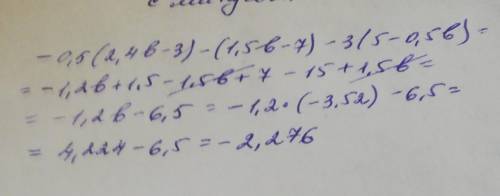 -0,5(2,4в-3)-(1,5в-7)-3(5-0,5в)=
=-1,2в+1,5-1,5в+7-15+1,5в=
=-1,2в-6,5=-1,2·(-3,52)-6,5=
=4,224-6,5=-2,276